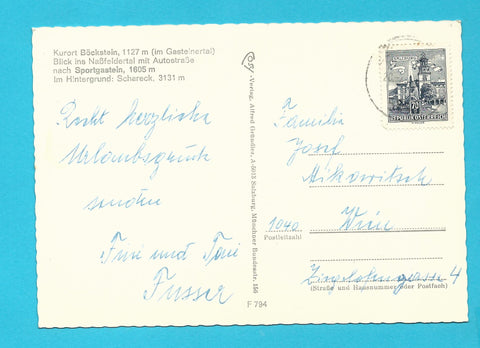 Kurort Böckstein, 1127 m (im Gasteinertal)
Blick ins Naßfeldertal mit Autostraße
nach Sportgastein, 1605 m
Im Hintergrund: Schareck, 3131 m
Recht herzliche
Urlaubsgrüße
senden
Fini und Toni
Fusser
Verlag Alfred Gründler, A-5033 Salzburg, Münchner Bundesstr. 156
F 794
REPUBLIK ÖSTERREICH
a
Familie
Josef
1040
Wien
Postleitzahl
4
(Straße und Hausnummer oder Postfach)